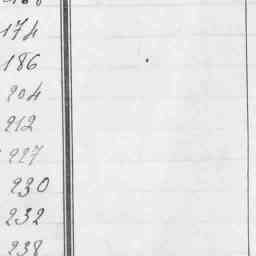 174
186
204
212
227
230
232
238